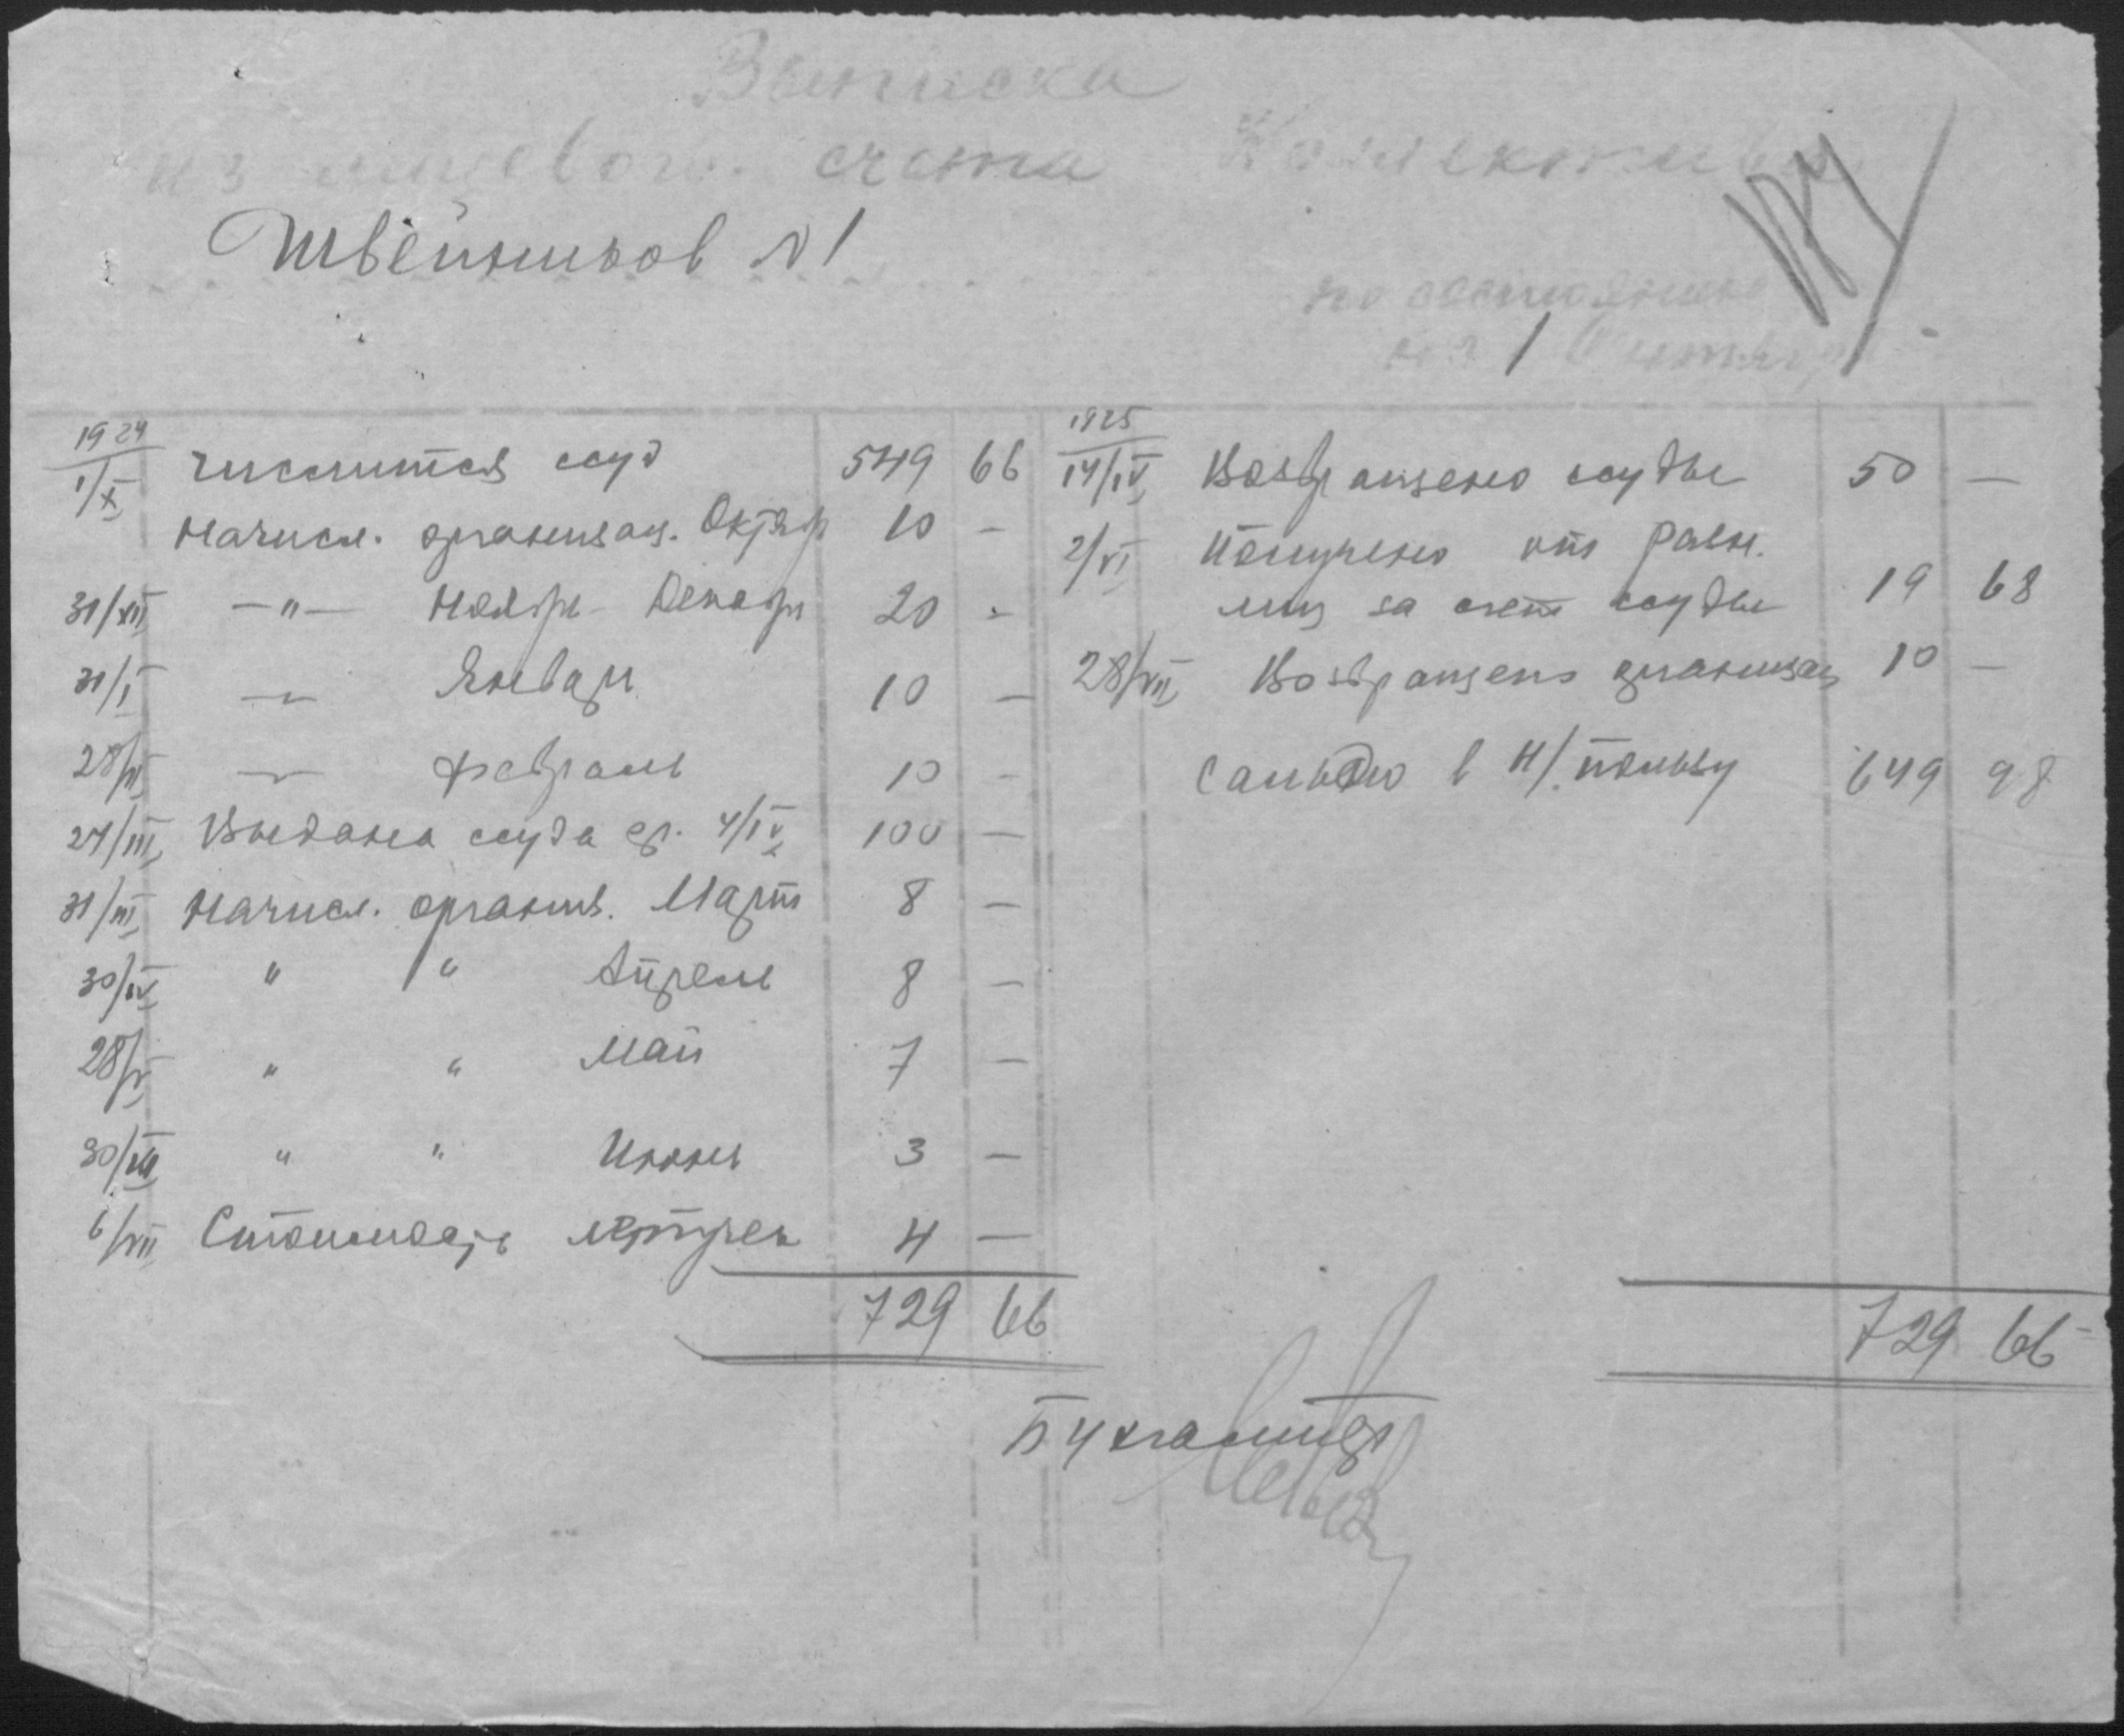 Выписка
из лицевого счета Коллектива
Швейников № 1
по состоянию
на 1 Октября
1924
1/X Числится ссуд 549 66
Начисл. организац. Октябр 10 -
31/XII -"- Ноябрь Декабрь 20 -
31/I -"- Январь 10 -
28/II -"- февраль 10 -
24/III Выдана ссуда ср. 4/IV 100 -
31/III Начисл. организ. Март 8 -
30/IV " " Апрель 8 -
28/V " " Май 7 -
30/VI " " Июнь 3 -
6/VII Стоимость 4 -
729 66
1925
14/IV Возвращено ссуды 50 -
2/VI Получено от разн.
лиц за счет ссуды 19 68
28/VII Возвращено организац 10 -
Сальдо в н/пользу 649 98
729 66
Бухгалтер